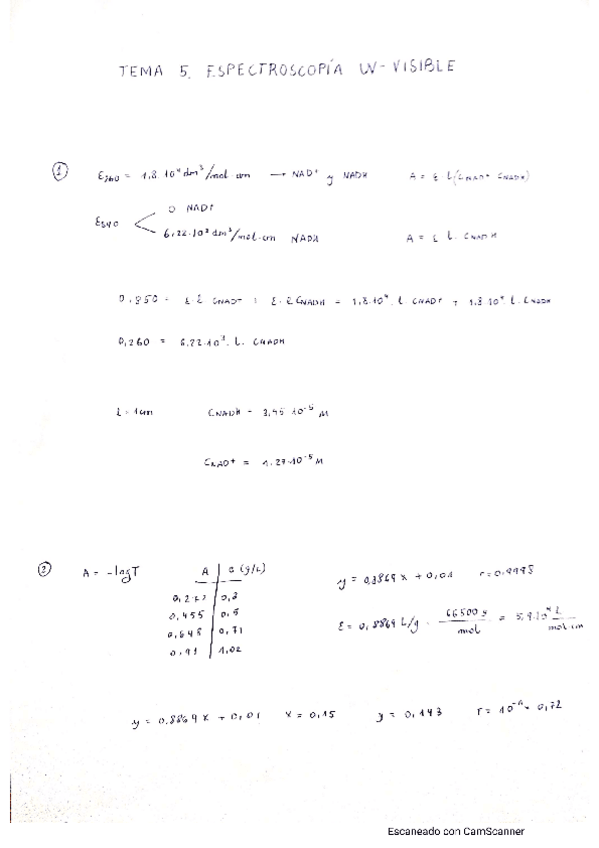 TEMA 5. ESPECTROSCOPÍA UV-VISIBLE
① ε260 = 1,8·10⁴ dm³/mol cm → NAD⁺ y NADH A = ε l(CNAD⁺ CNADH)
ε340 < 0 NAD⁺
6,22·10³ dm³/mol·cm NADH A = ε l. CNADH
0,850 = ε·l CNAD⁺ + ε·l CNADH = 1,8·10⁴. l CNAD⁺ + 1,8·10⁴ l. CNADH
0,260 = 6,22·10³. l. CNADH
l = 1cm CNADH = 3,45·10⁻⁵ M
CNAD⁺ = 1,27·10⁻⁵ M
② A = -logT A C (g/L)
0,3
0,455 0,5
0,645 0,71
0,91 1,02
y = 0,8869 x + 0,01 r = 0,9995
ε = 0,8869 L/g · 66500 g / mol = 5,9·10⁴ L / mol·cm
y = 0,8869 x + 0,01 x = 0,15 y = 0,143 T = 10⁻ᴬ = 0,72
Escaneado con CamScanner